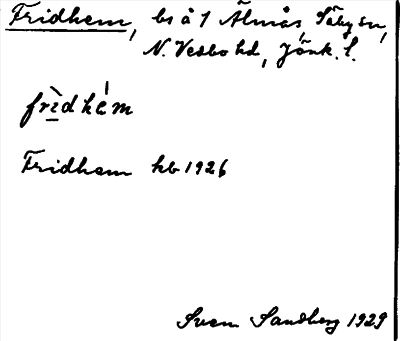 Fridhem, bs å 1 Älmås Säby sn,
N. Vedbo hd, Jönk. l.
frìdhém
Fridhem hb 1926
Sven Sandberg 1929